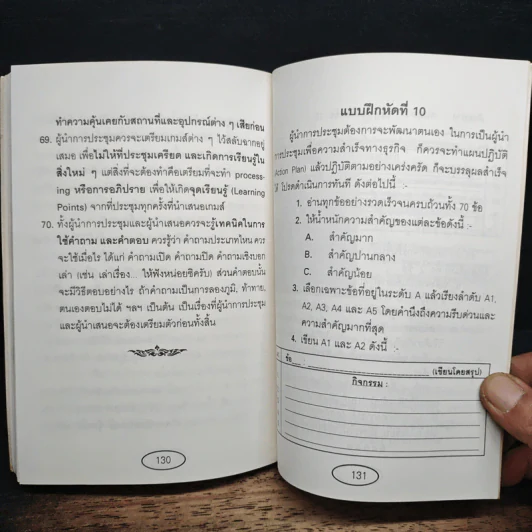 ทำความคุ้นเคยกับสถานที่และอุปกรณ์ต่าง ๆ เสียก่อน
69. ผู้นำการประชุมควรจะเตรียมเกมส์ต่าง ๆ ไว้สลับฉากอยู่
เสมอ เพื่อไม่ให้ที่ประชุมเครียด และเกิดการเรียนรู้ใน
สิ่งใหม่ ๆ แต่สิ่งที่จะต้องทำคือเตรียมที่จะทำ process-
ing หรือการอภิปราย เพื่อให้เกิดจุดเรียนรู้ (Learning
Points) จากที่ประชุมทุกครั้งที่นำเสนอเกมส์
70. ทั้งผู้นำการประชุมและผู้นำเสนอควรจะรู้เทคนิคในการ
ใช้คำถาม และคำตอบ ควรรู้ว่า คำถามประเภทไหน ควร
จะใช้เมื่อไร ได้แก่ คำถามเปิด คำถามปิด คำถามเชิงบอก
เล่า (เช่น เล่าเรื่อง... ให้ฟังหน่อยซิครับ) ส่วนคำตอบนั้น
จะมีวิธีตอบอย่างไร ถ้าคำถามเป็นการลองภูมิ, ท้าทาย,
ตนเองตอบไม่ได้ ฯลฯ เป็นต้น เป็นเรื่องที่ผู้นำการประชุม
และผู้นำเสนอจะต้องเตรียมตัวก่อนทั้งสิ้น
130
แบบฝึกหัดที่ 10
ผู้นำการประชุมต้องการจะพัฒนาตนเอง ในการเป็นผู้นำ
การประชุมเพื่อความสำเร็จทางธุรกิจ ก็ควรจะทำแผนปฏิบัติ
Action Plan) แล้วปฏิบัติตามอย่างเคร่งครัด ก็จะบรรลุผลสำเร็จ
ได้ โปรดดำเนินการทันที ดังต่อไปนี้ :-
1. อ่านทุกข้ออย่างรวดเร็วจนครบถ้วนทั้ง 70 ข้อ
2. ให้น้ำหนักความสำคัญของแต่ละข้อดังนี้ :-
A. สำคัญมาก
B. สำคัญปานกลาง
C. สำคัญน้อย
3. เลือกเฉพาะข้อที่อยู่ในระดับ A แล้วเรียงลำดับ A1,
A2, A3, A4 และ A5 โดยคำนึงถึงความรีบด่วนและ
ความสำคัญมากที่สุด
4. เขียน A1 และ A2 ดังนี้ :-
ข้อ (เขียนโดยสรุป)
กิจกรรม :
131